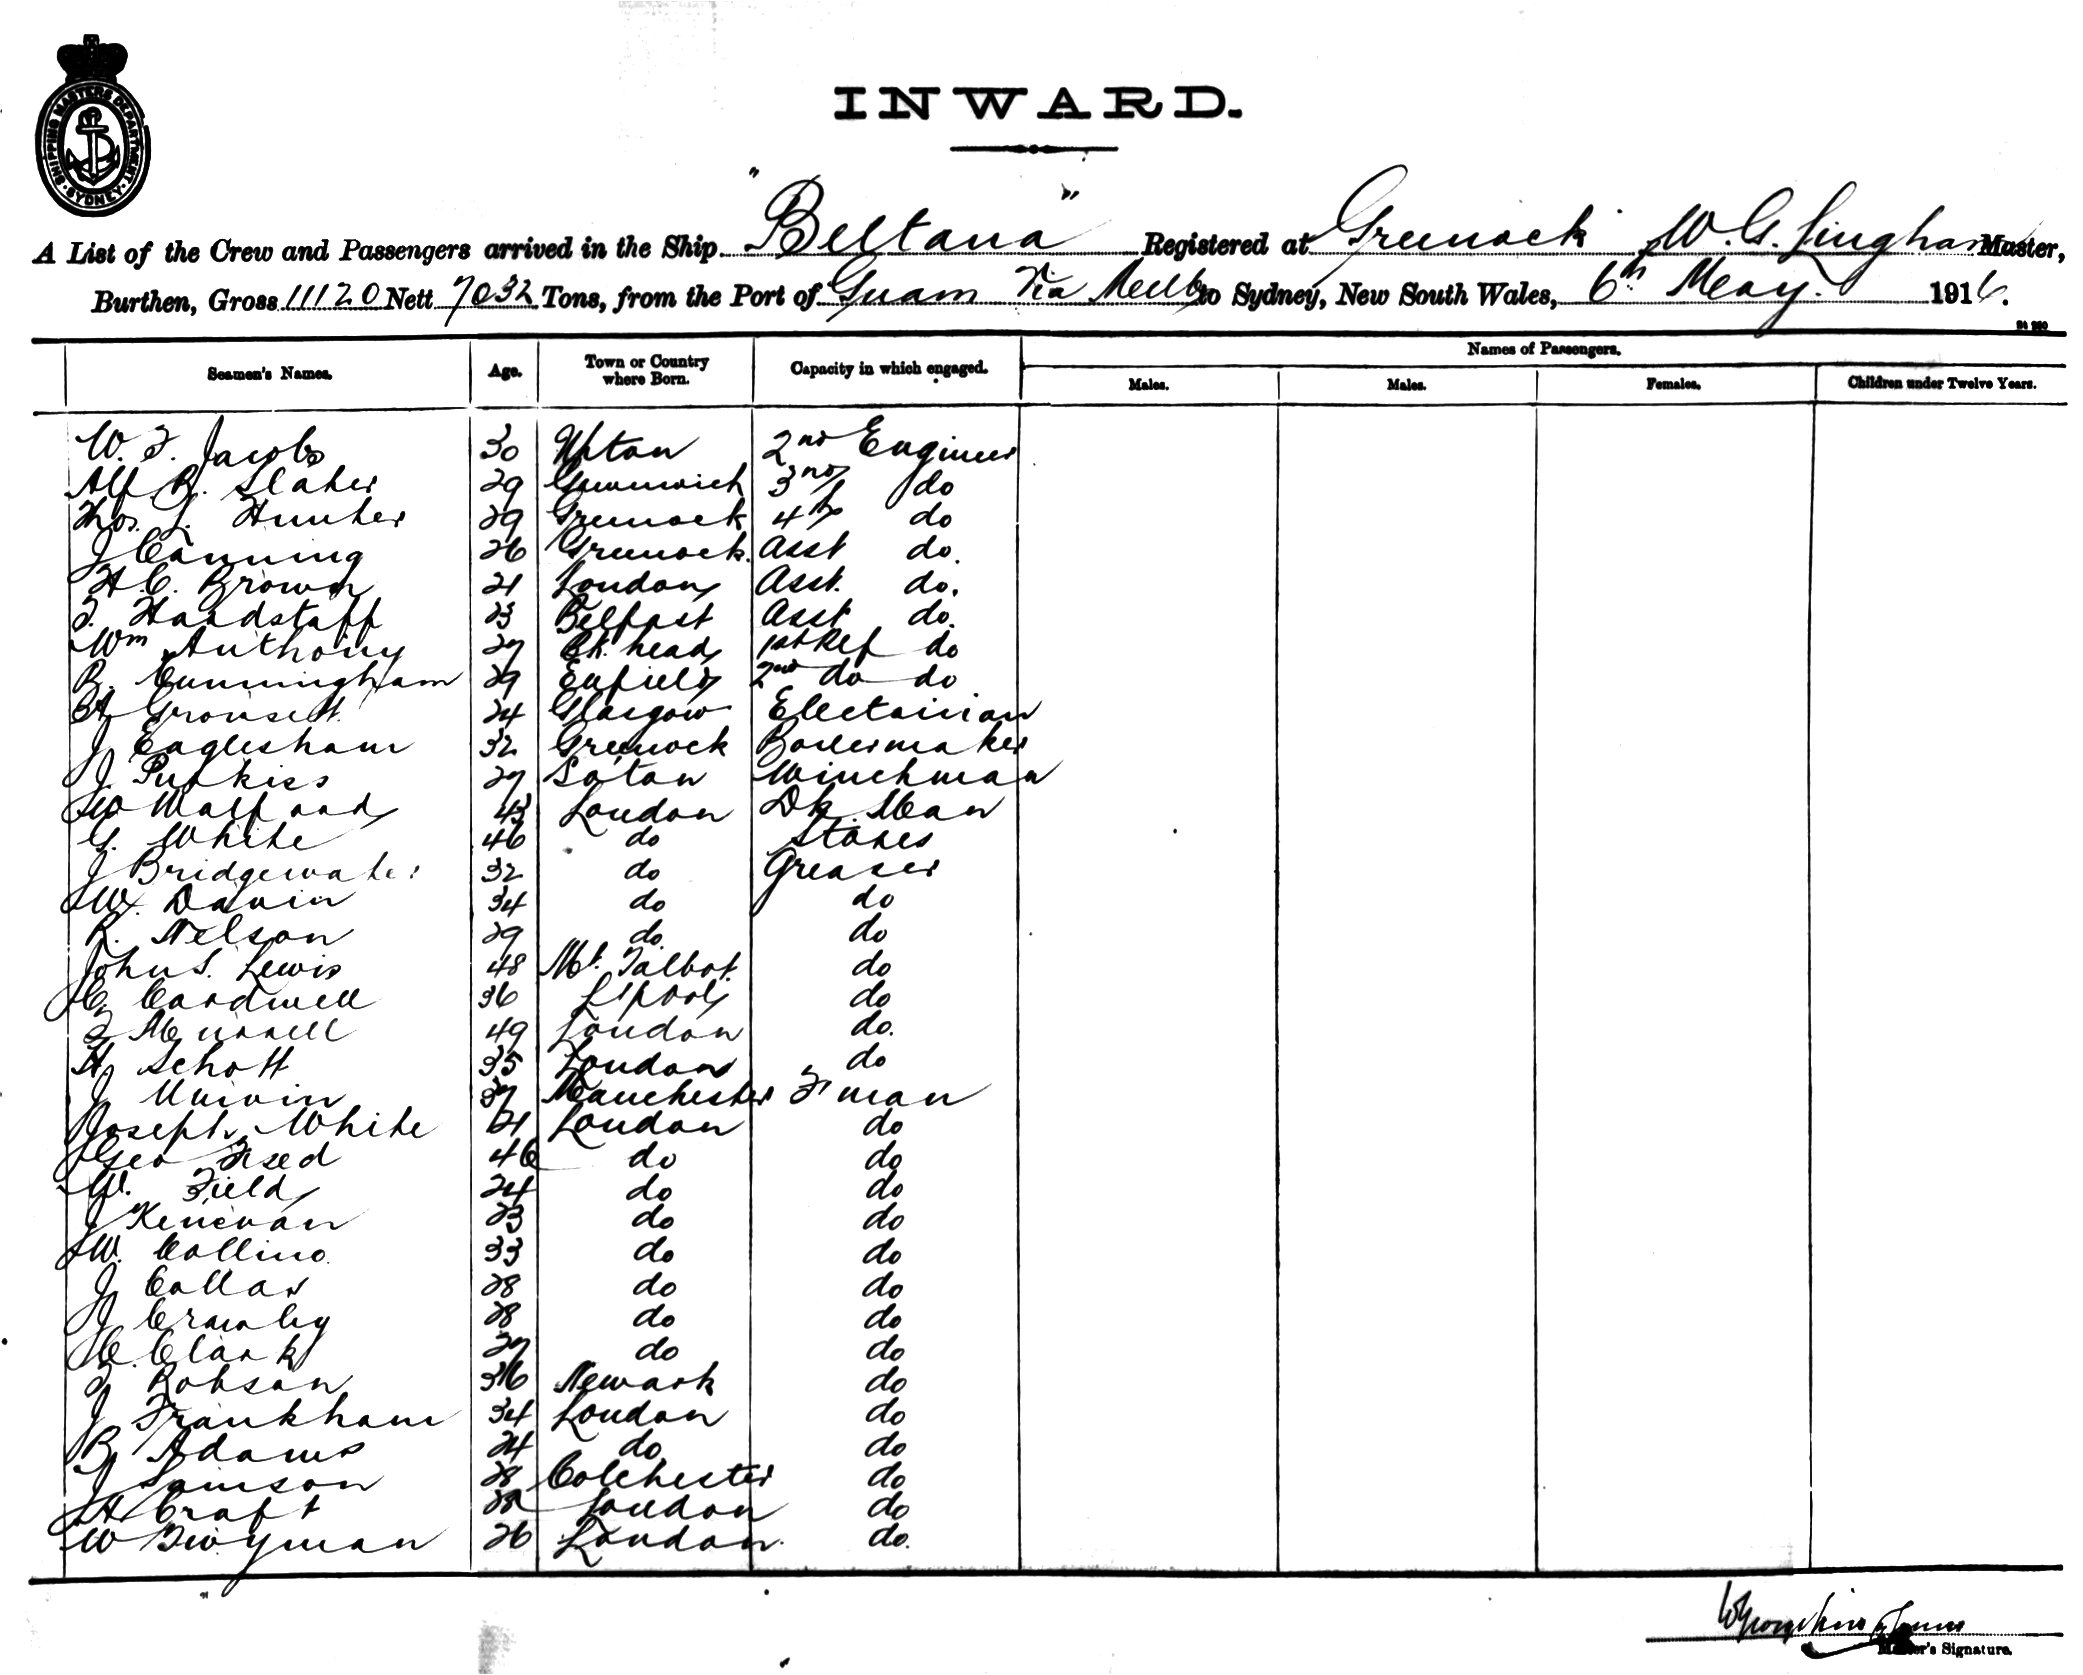 SHIPPING MASTERS DEPARTMENT. SYDNEY.
INWARD.
A List of the Crew and Passengers arrived in the Ship "Beltana" Registered at Greenock W. G. Lingham Master,
Burthen, Gross 11120 Nett 7032 Tons, from the Port of Guam Via Melb to Sydney, New South Wales, 6th May. 1916.
Seamen's Names. Age. Town or Country where Born. Capacity in which engaged. Names of Passengers.
Males. Males. Females. Children under Twelve Years.
W. F. Jacobs 30 Upton 2nd Engineer
Alf R. Slater 29 Greenwich 3rd do
Thos. J. Hunter 29 Greenock 4th do
J Canning 26 Greenock. Asst do.
H. C. Brown 21 London Asst. do.
F. Hardstaff 23 Belfast Asst do.
Wm Anthony 27 Bk. head 1st Ref do
R. Cunningham 29 Enfield 2nd do do
24 Glasgow Electrician
J Eaglesham 32 Greenock Boilermaker
J Purkiss 27 So'ton Winchman
W Walford 43 London Dk. Man
G. White 46 do Stores
J Bridgewater 32 do Greaser
W. Davin 34 do do
R. Nelson 29 do. do
John S. Lewis 48 Mt. Talbot. do
C. Cardwell 36 L'pool do
F Murrell 49 London do.
H. Schott 35 London do
J 37 Manchester F'man
Joseph White 21 London do
Geo Freed 46 do do
W. Field 24 do do
J Kenevan 23 do do
W. Collins. 33 do do
J Collar 28 do do
J Crawley 28 do do
C. Clark 27 do do
F Robson 36 Newark do
J Frankham 34 London do
B Adams 24 do do
J Samson 28 Colchester do
H Craft London do
W Twyman 26 London. do.
Master's Signature.